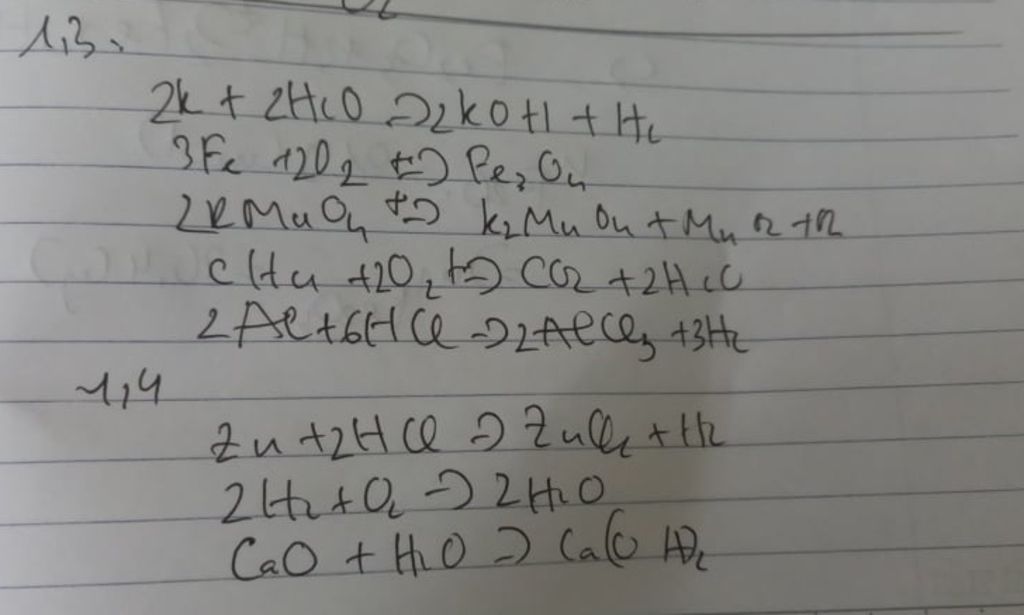 1,3.
2K + 2H2O → 2KOH + H2
3Fe + 2O2 t→ Fe3O4
2KMnO4 t→ K2MnO4 + MnO2 + O2
CH4 + 2O2 t→ CO2 + 2H2O
2Al + 6HCl → 2AlCl3 + 3H2
1,4
Zn + 2HCl → ZnCl2 + H2
2H2 + O2 → 2H2O
CaO + H2O → Ca(OH)2